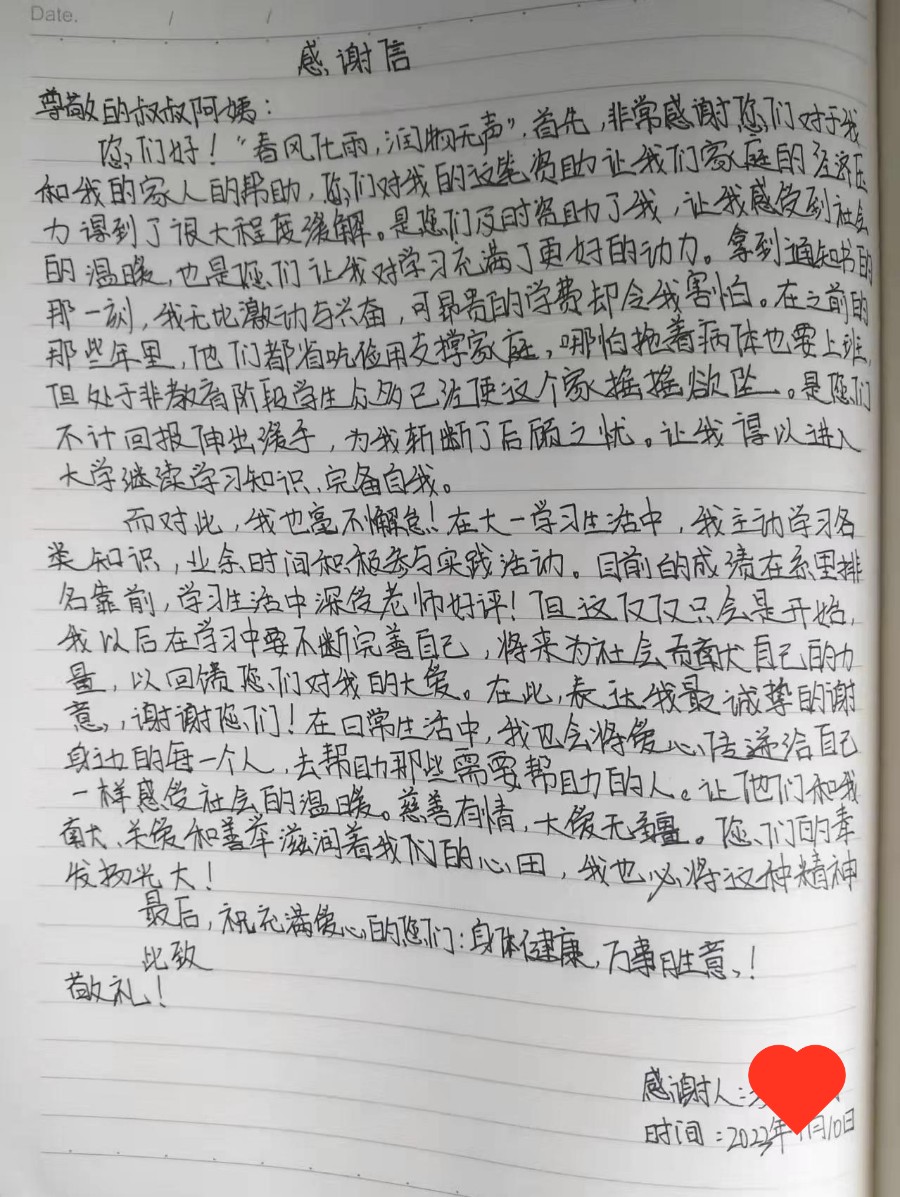 Date. / /
感谢信
尊敬的叔叔阿姨：
您们好！“春风化雨，润物无声”，首先，非常感谢您们对于我
和我的家人的帮助，您们对我的这笔资助让我们家庭的经济压
力得到了很大程度缓解。是您们及时资助了我，让我感受到社会
的温暖，也是您们让我对学习充满了更好的动力。拿到通知书的
那一刻，我无比激动与兴奋，可昂贵的学费却令我害怕。在之前的
那些年里，他们都省吃俭用支撑家庭，哪怕拖着病体也要上班，
但处于非教育阶段学生众多已经使这个家摇摇欲坠。是您们
不计回报伸出缓手，为我斩断了后顾之忧。让我得以进入
大学继续学习知识、完备自我。
而对此，我也毫不懈怠！在大一学习生活中，我主动学习各
类知识，业余时间积极参与实践活动。目前的成绩在系里排
名靠前，学习生活中深受老师好评！但这仅仅只会是开始，
我以后在学习中要不断完善自己，将来为社会贡献自己的力
量，以回馈您们对我的大爱。在此，表达我最诚挚的谢
意，谢谢您们！在日常生活中，我也会将爱心传递给自己
身边的每一个人，去帮助那些需要帮助的人。让他们和我
一样感受社会的温暖。慈善有情，大爱无疆。您们的奉
献、关爱和善举滋润着我们的心田，我也必将这种精神
发扬光大！
最后，祝充满爱心的您们：身体健康，万事胜意！
此致
敬礼！
感谢人：
时间：2023年 月10日